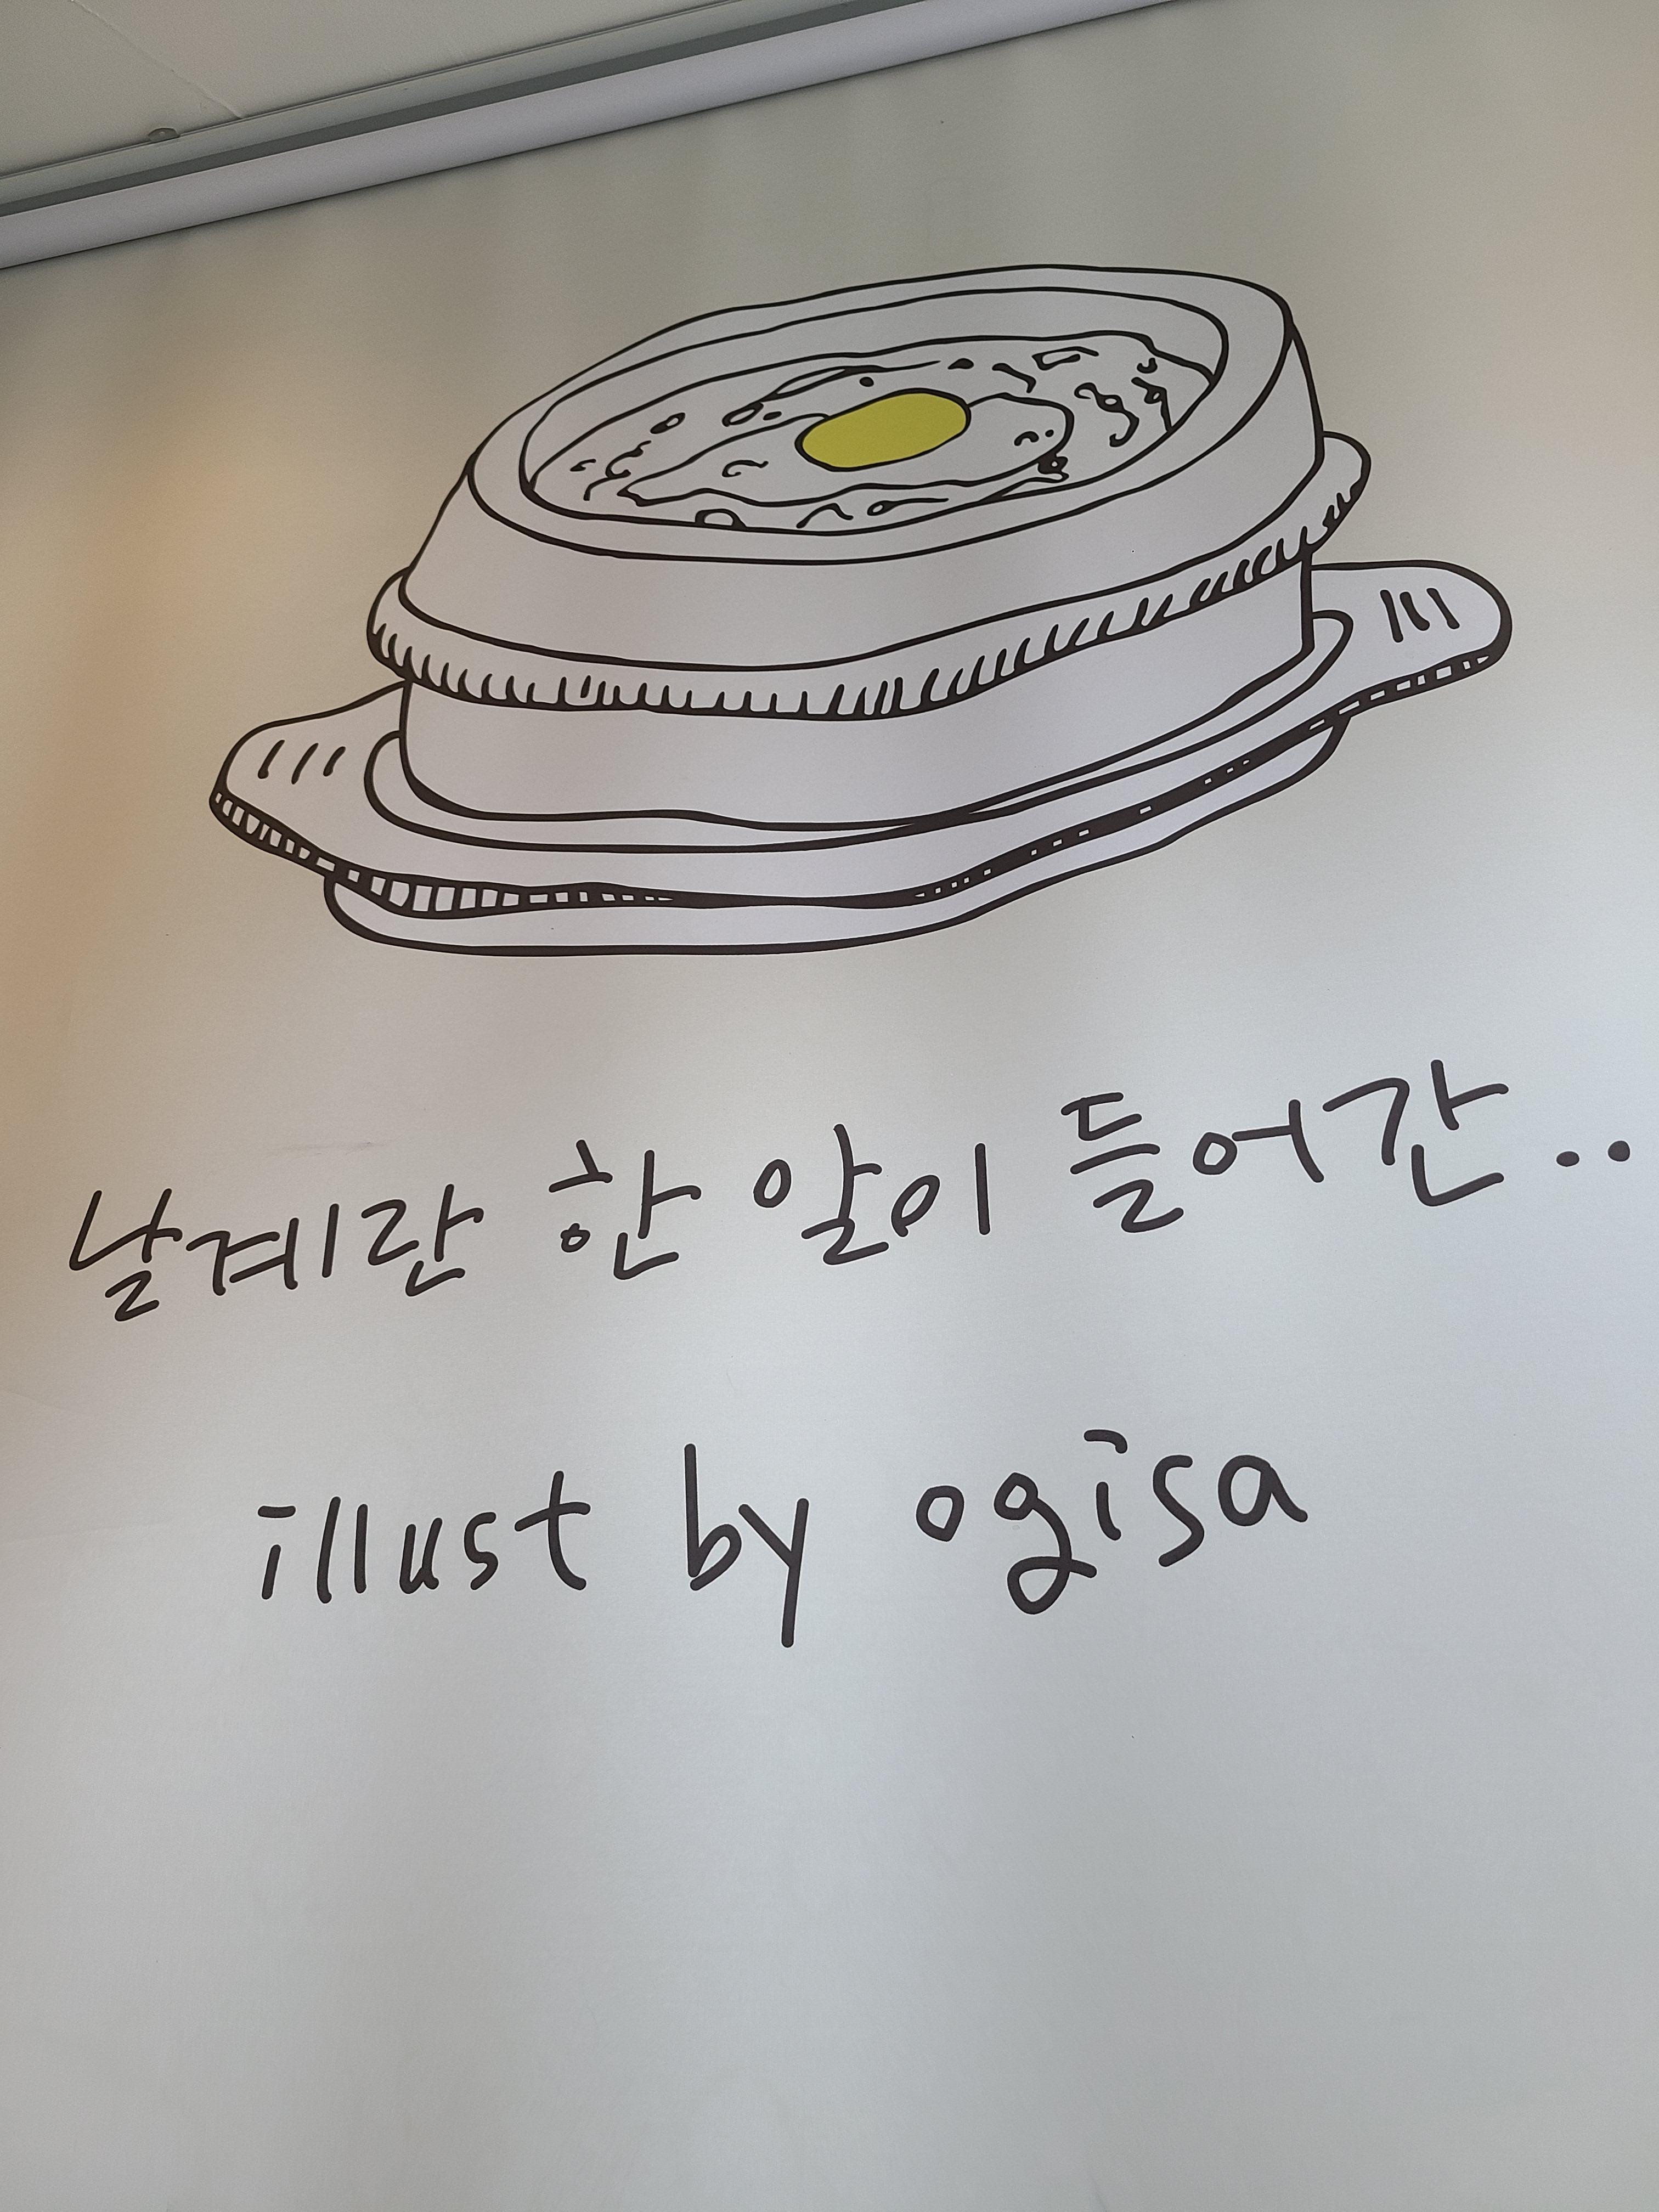 날계란 한 알이 들어간..
illust by ogisa